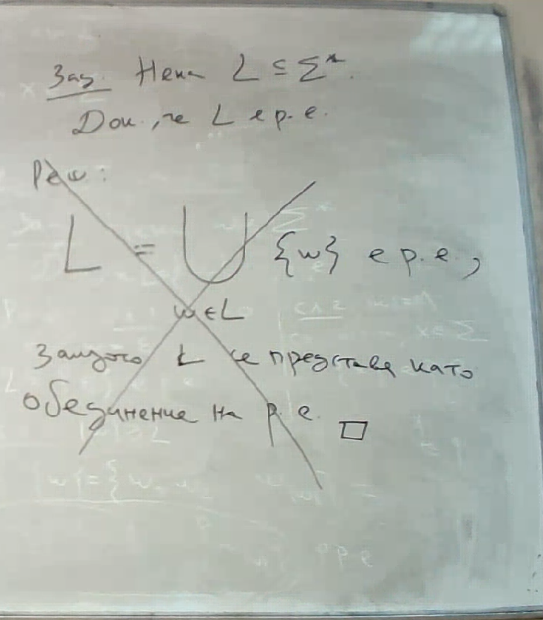 Зад. Нека L ⊆ Σ*.
Док., че L е р.е.
Реш:
L = ⋃ {w} е р.е.,
w∈L
защото L се представя като
обединение на р.е. □